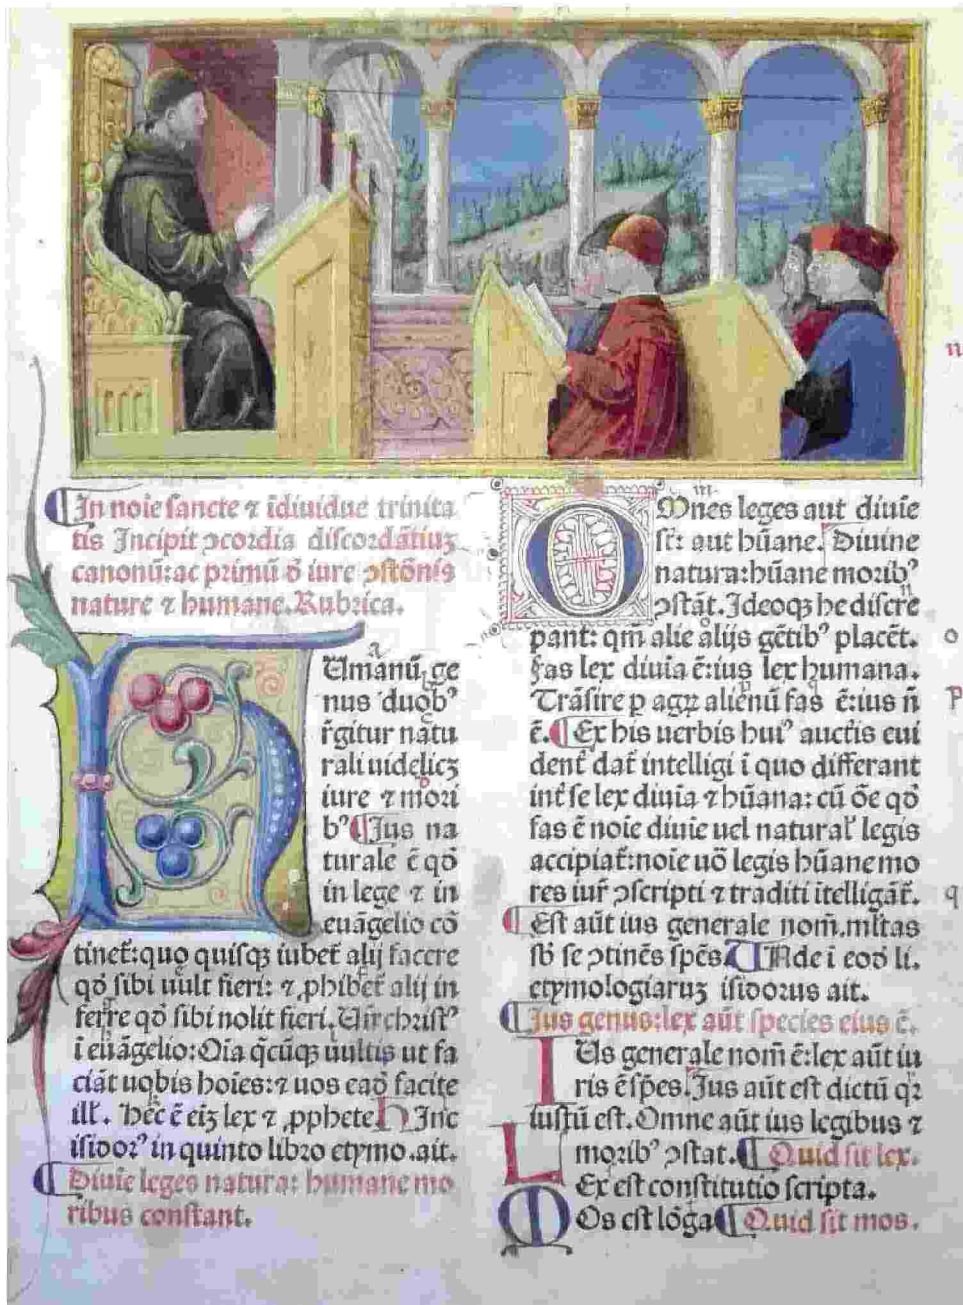 In noīe sancte ⁊ īdiuidue trinita
tis Incipit ↄcordia discordātiuꝫ
canonū: ac primū ꝺ̄ iure ↄstōnis
nature ⁊ humane. Rubrica.
Umanū ge
nus duobꝰ
r̄gitur natu
rali uidelicꝫ
iure ⁊ mori
bꝰ ¶ Jus na
turale ē qꝺ̄
in lege ⁊ in
euāgelio cō
tinet᷑: quo quisqꝫ iubet᷑ alij facere
qꝺ̄ sibi uult fieri: ⁊ ꝓhibet᷑ alij in
ferre qꝺ̄ sibi nolit fieri. Uñ christꝰ
ī euāgelio: Oīa q̄cūqꝫ uultis ut fa
ciāt uobis hoīes: ⁊ uos eaꝺ̄ facite
ill̄. Hec ē eiꝫ lex ⁊ ꝓphete Hinc
isidorꝰ in quinto libro etymo. ait.
¶ Diuīe leges natura: humane mo
ribus constant.
Omnes leges aut diuīe
st̄: aut hūane. Diuine
natura: hūane moribꝰ
ↄstāt. Ideoqꝫ he discre
pant: qm̄ alie alijs gētibꝰ placēt.
Fas lex diuīa ē: ius lex humana.
Trāsire p agrꝫ alienū fas ē: ius ñ
ē. ¶ Ex his uerbis huiꝰ auctīs eui
dent᷑ dat᷑ intelligi ī quo differant
int᷑ se lex diuīa ⁊ hūana: cū oē qꝺ̄
fas ē noīe diuīe uel natural̄ legis
accipiat᷑: noīe uō legis hūane mo
res iur̄ ↄscripti ⁊ traditi ītelligāt᷑.
¶ Est aūt ius generale nom̄. mltas
sb̄ se ↄtinēs sp̄es. ¶ Unde ī eoꝺ̄ li.
etymologiaruꝫ isidorus ait.
¶ Jus genus: lex aūt species eius ē.
Ius generale nom̄ ē: lex aūt iu
ris ē sp̄es. Jus aūt est dictū qꝛ
iustū est. Omne aūt ius legibus ⁊
moribꝰ ↄstat. ¶ Quid sit lex.
Lex est constitutio scripta.
Mos est lōga ¶ Quid sit mos.
n
o
p
q